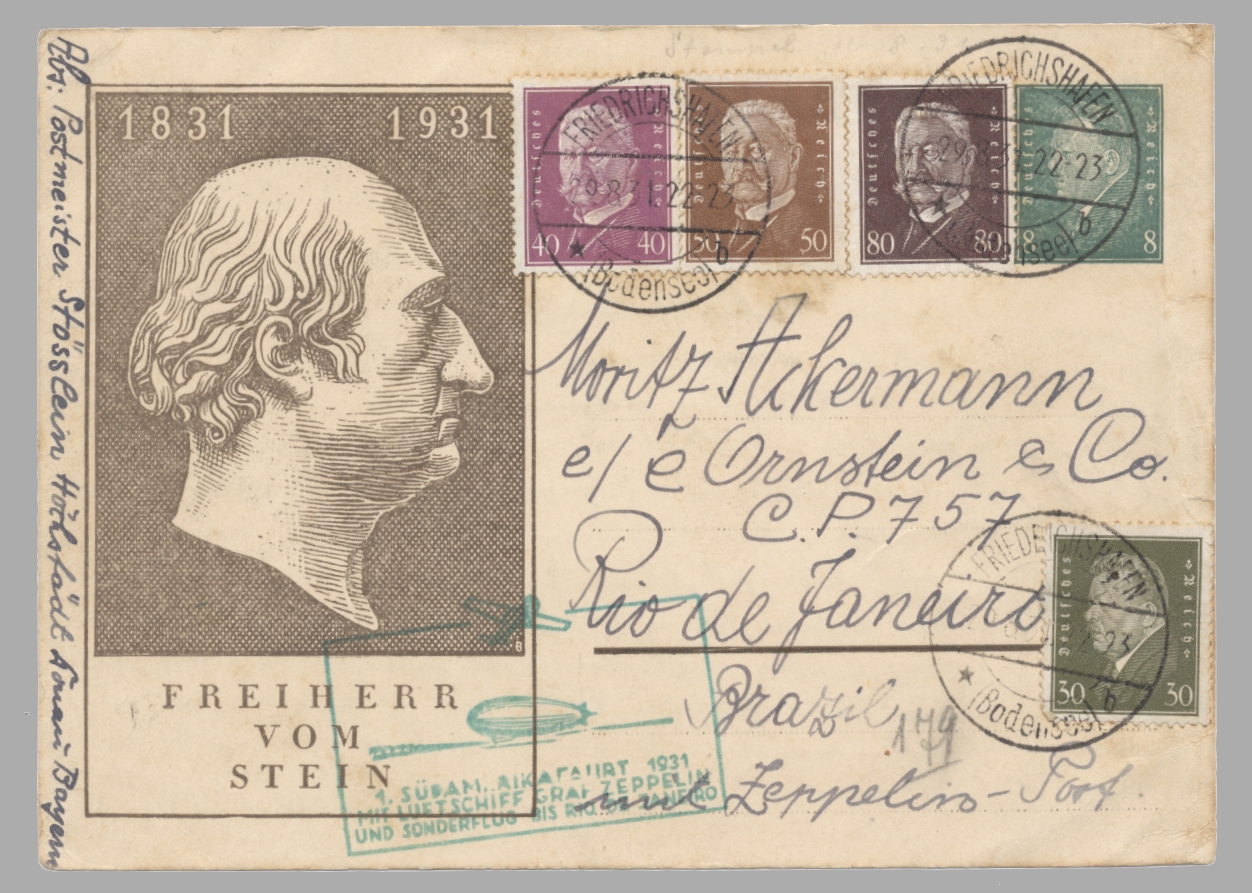 Stempel
Abs: Postmeister Stösslein Höchstädt Donau Bayern
1831 1931
FREIHERR
VOM
STEIN
Deutsches Reich
40 40
Deutsches Reich
50 50
Deutsches Reich
80 80
8 8
FRIEDRICHSHAFEN
29.8.31.22-23
* (Bodensee) b
FRIEDRICHSHAFEN
29.8.31.22-23
* (Bodensee) b
Moritz Ackermann
c/c Ornstein & Co.
C.P. 757
Rio de Janeiro
Brazil
179
mit Zeppelin-Post.
Deutsches Reich
30 30
FRIEDRICHSHAFEN
23
* (Bodensee) b
1. SÜDAMERIKAFAHRT 1931
MIT LUFTSCHIFF GRAF ZEPPELIN
UND SONDERFLUG BIS RIO DE JANEIRO